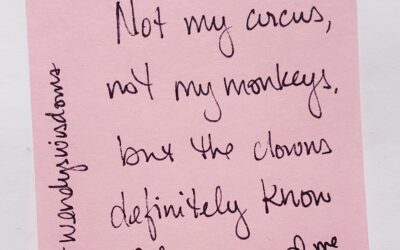 Not my circus,
not my monkeys,
but the clowns
definitely know
me
wendyswisdoms